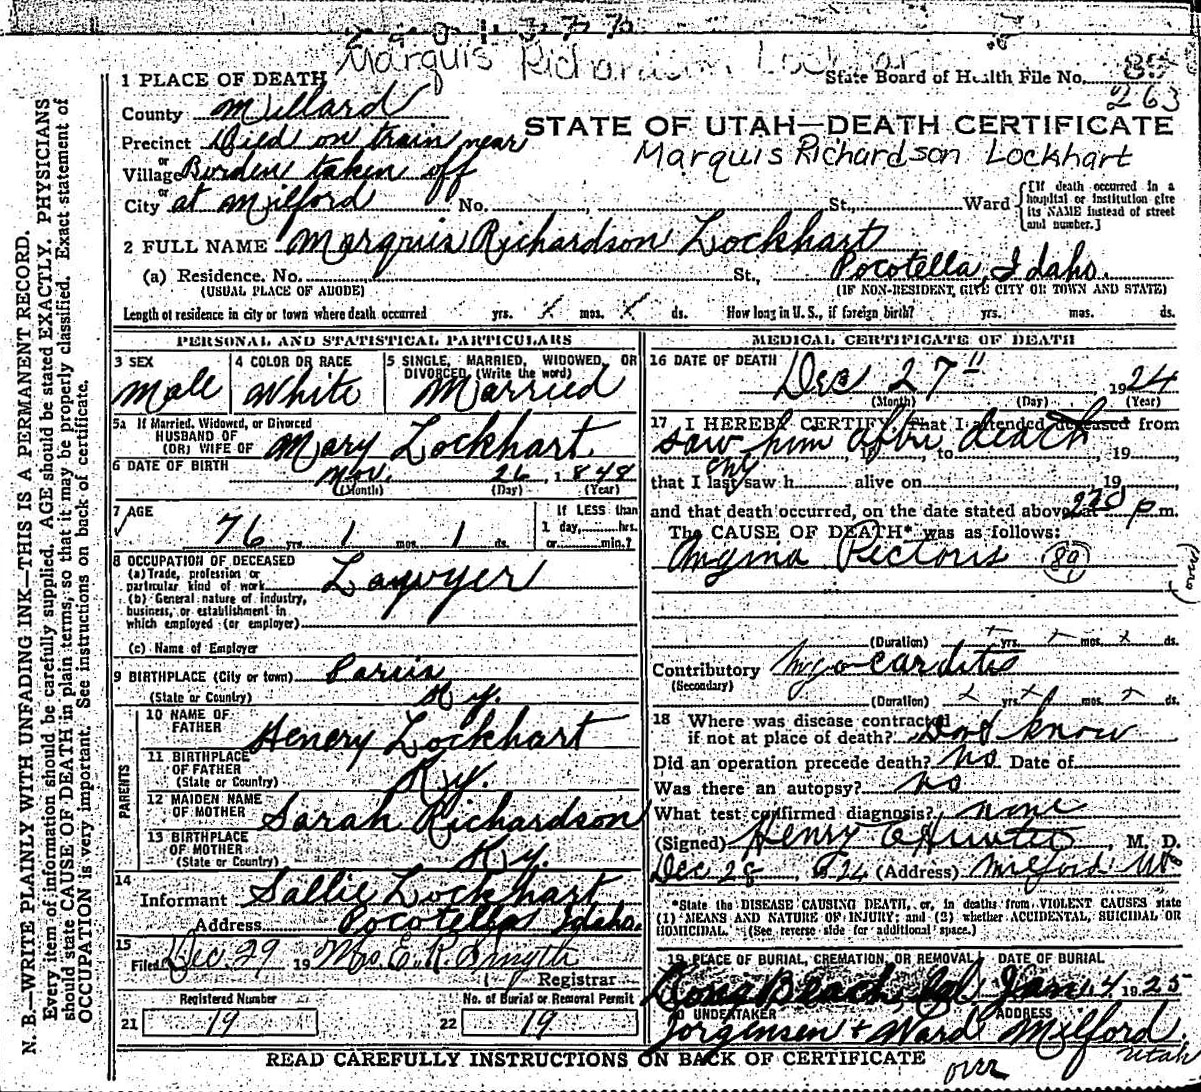 2 4 0 1 3 7 7
Marquis Richardson Lockhart
1 PLACE OF DEATH
State Board of Health File No. 85
263
County Millard
STATE OF UTAH—DEATH CERTIFICATE
Precinct Died on train near
Marquis Richardson Lockhart
or
Village Burden taken off
or
City at Milford No. St., Ward
[If death occurred in a hospital or institution give its NAME instead of street and number.]
2 FULL NAME Marquis Richardson Lockhart
(a) Residence. No. St., Pocotella, Idaho.
(USUAL PLACE OF ABODE) (IF NON-RESIDENT, GIVE CITY OR TOWN AND STATE)
Length of residence in city or town where death occurred yrs. x mos. x ds. How long in U. S., if foreign birth? yrs. mos. ds.
PERSONAL AND STATISTICAL PARTICULARS
3 SEX Male
4 COLOR OR RACE White
5 SINGLE, MARRIED, WIDOWED, OR DIVORCED (Write the word) Married
5a If Married, Widowed, or Divorced
HUSBAND OF
(OR) WIFE OF Mary Lockhart
6 DATE OF BIRTH Nov. 26, 1848
(Month) (Day) (Year)
7 AGE 76 yrs. 1 mos. 1 ds.
If LESS than
1 day, hrs.
or min.?
8 OCCUPATION OF DECEASED
(a) Trade, profession or
particular kind of work Lawyer
(b) General nature of industry,
business, or establishment in
which employed (or employer)
(c) Name of Employer
9 BIRTHPLACE (City or town) Paris
(State or Country) Ky.
PARENTS
10 NAME OF FATHER Henery Lockhart
11 BIRTHPLACE OF FATHER
(State or Country) Ky.
12 MAIDEN NAME OF MOTHER Sarah Richardson
13 BIRTHPLACE OF MOTHER
(State or Country) Ky.
14
Informant Sallie Lockhart
Address Pocotella Idaho.
15
Filed Dec. 29 19 Mrs. E. R. Smyth
Registrar
Registered Number
21 19
No. of Burial or Removal Permit
22 19
MEDICAL CERTIFICATE OF DEATH
16 DATE OF DEATH Dec 27th 1924
(Month) (Day) (Year)
17 I HEREBY CERTIFY, That I attended deceased from
saw him after death, 19, to, 19
that I last saw h alive on 19
and that death occurred, on the date stated above, at 230 p m.
The CAUSE OF DEATH* was as follows:
Angina Pectoris 89
(over)
(Duration) x yrs. x mos. x ds.
Contributory Myo-carditis
(Secondary)
(Duration) x yrs. x mos. x ds.
18 Where was disease contracted
if not at place of death? Dont know
Did an operation precede death? No Date of
Was there an autopsy? no
What test confirmed diagnosis? none
(Signed) Henry E Hunter, M. D.
Dec 28, 1924 (Address) Milford Ut
*State the DISEASE CAUSING DEATH, or, in deaths from VIOLENT CAUSES state
(1) MEANS AND NATURE OF INJURY; and (2) whether ACCIDENTAL, SUICIDAL OR
HOMICIDAL. (See reverse side for additional space.)
19 PLACE OF BURIAL, CREMATION, OR REMOVAL DATE OF BURIAL
Long Beach Cal. Jan. 4 1925
20 UNDERTAKER ADDRESS
Jorgensen + Ward Milford
Utah
READ CAREFULLY INSTRUCTIONS ON BACK OF CERTIFICATE
over
N. B.—WRITE PLAINLY WITH UNFADING INK—THIS IS A PERMANENT RECORD.
Every item of information should be carefully supplied. AGE should be stated EXACTLY. PHYSICIANS
should state CAUSE OF DEATH in plain terms, so that it may be properly classified. Exact statement of
OCCUPATION is very important. See instructions on back of certificate.